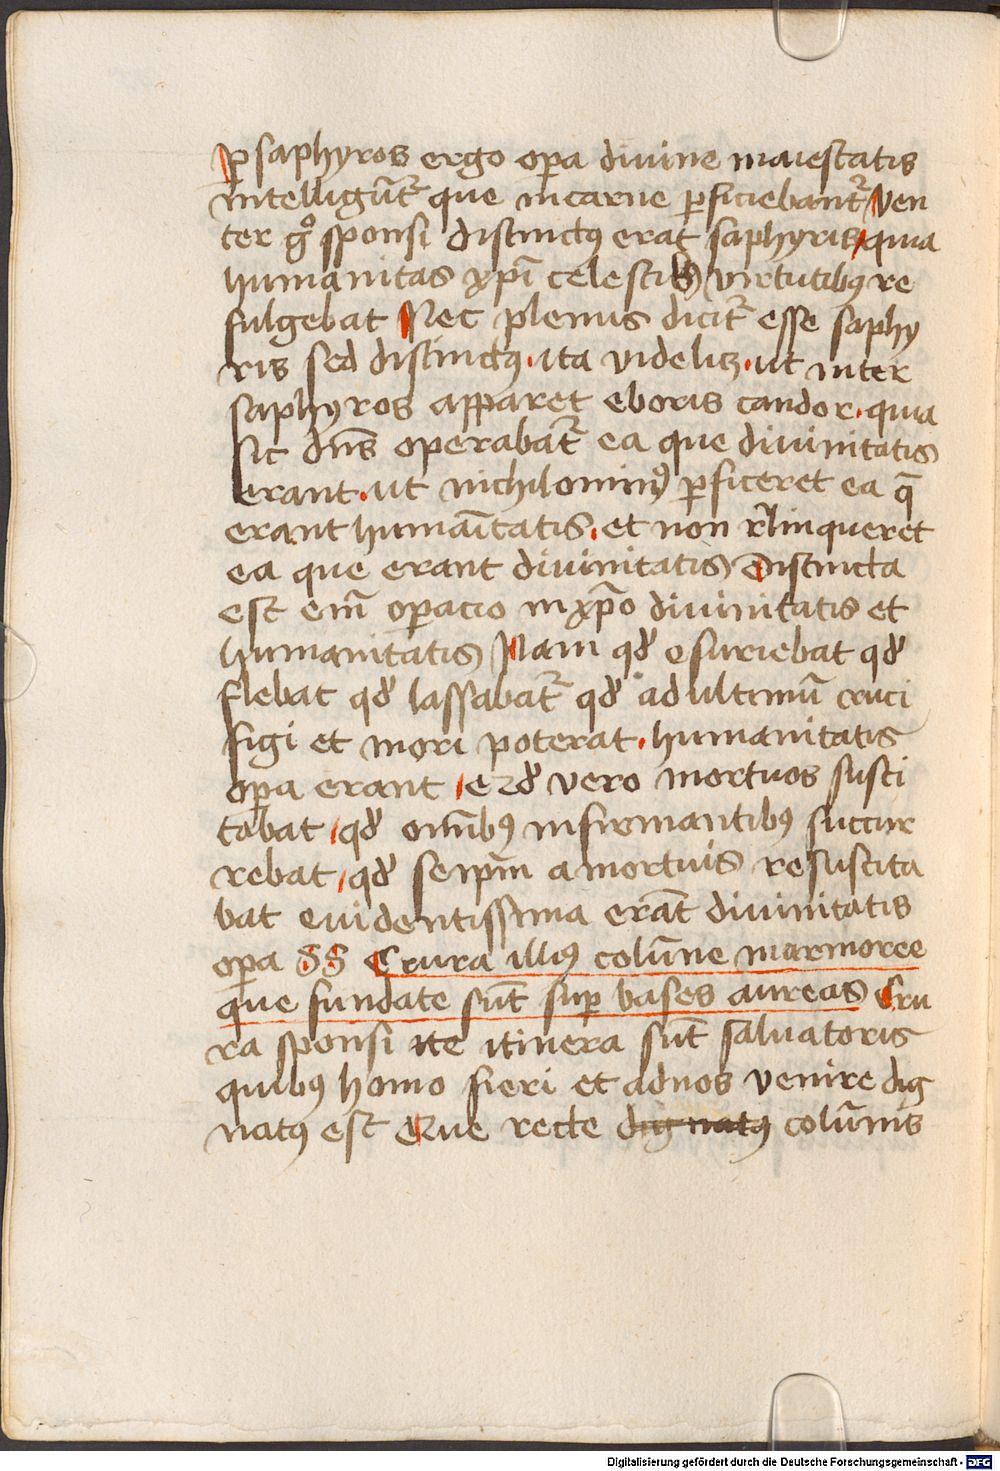 ꝑ saphyros ergo oꝑa diuine maiestatis
intelligūtᷣ que in carne ꝑficiebantᷣ Uen
ter gͦ sponsi distinctꝰ erat saphyris quia
humanitas xp̄i celestibꝰ virtutibꝰ re
fulgebat Nec plenus dicitᷣ esse saphy
ris sed distinctꝰ · ita videlicꝫ · ut inter
saphyros apparet eboris candor · quia
sic dn̄s operabatᷣ ea que diuinitatis
erant · ut nichilominꝰ ꝑficeret ea q̄
erant humaītatis · et non rl̄inqueret
ea que erant diuinitatis Distincta
est em̄ oꝑacio in xp̄o diuinitatis et
humanitatis Nam qd̕ esuriebat qd̕
flebat qd̕ lassabatᷣ qd̕ ad ultimū cruci
figi et mori poterat · humanitatis
oꝑa erant / Qd̕ vero mortuos susci
tabat / qd̕ om̄ibꝰ infirmantibꝰ succur
rebat / qd̕ seip̄m a mortuis resuscita
bat euidentissima erāt diuinitatis
oꝑa SS Crura illiꝰ colūne marmoree
que fundate sūt suꝑ bases aureas Cru
ra sponsi ite itinera sūt saluatoris
quibꝰ homo fieri et ad nos venire dig
natꝰ est Que recte dignatꝰ colūnis
Digitalisierung gefördert durch die Deutsche Forschungsgemeinschaft - DFG